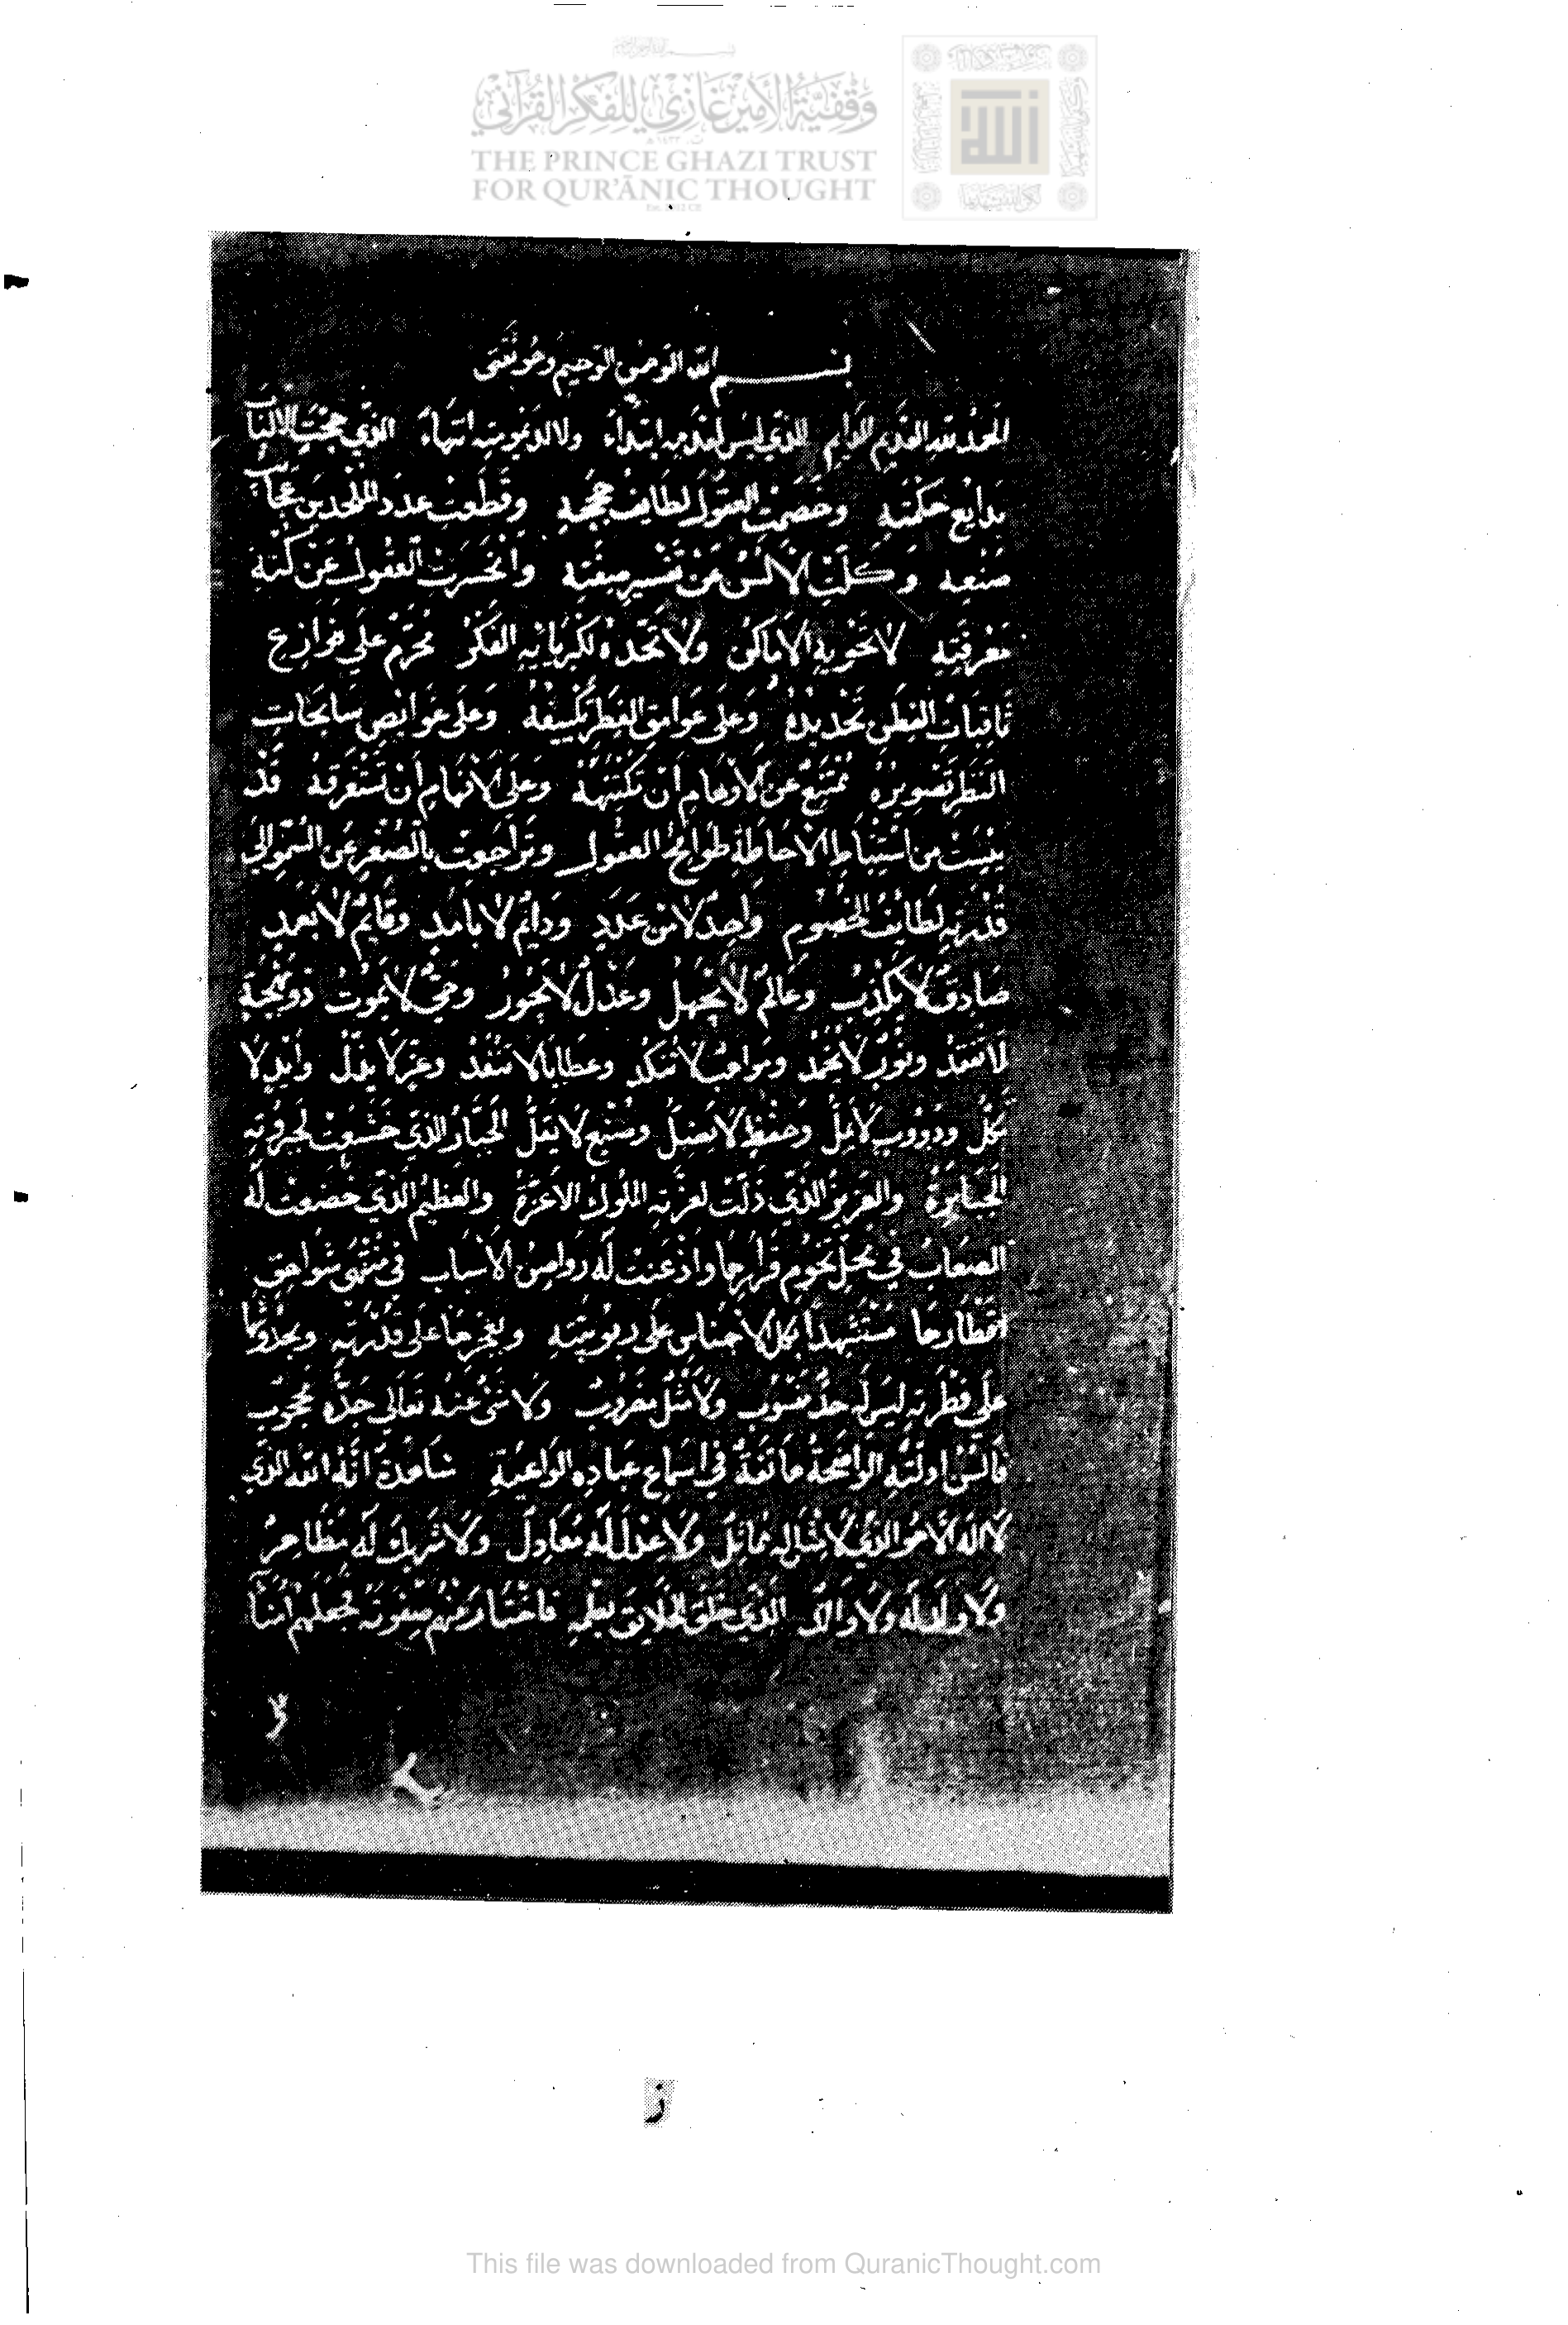 وقفية الأمير غازي للفكر القرآني
THE PRINCE GHAZI TRUST
FOR QUR'ĀNIC THOUGHT
بسم الله الرحمن الرحيم وهو ثقتى
الحمد لله القديم الدايم الذي ليس لقدمه ابتداء ولا لديموميته انتهاء الذي حجت الالباب
بدايع حكمته وخصمت العقول لطايف حججه وقطعت عذر الملحدين عجايب
صنعه وكلت الالسن عن تفسير صفته وانحسرت العقول عن كنه
معرفته لا تحويه الاماكن ولا تحده لكبريائه الفكر محرم على نوازع
ثاقبات الفطن تحديده وعلى عوامق الفطر تكييفه وعلى غوائص سابحات
النظر تصويره ممتنع عن الاوهام ان تكتنهه وعلى الافهام ان تستغرقه قد
يئست من استنباط الاحاطة طوامح العقول وتراجعت بالصغر عن السمو الى
قدرته لطايف الخصوم واحد لا من عدد ودايم لا بامد وقايم لا بعمد
صادق لا يكذب وعالم لا يجهل وعدل لا يجور وحي لا يموت ذو بهجة
لا تنفد ونور لا يخمد ومواهب لا تنكد وعطايا لا تنفد وعز لا يذل وايد لا
يكل ودؤوب لا يمل وحفظ لا يضل وصنع لا يقل الجبار الذي خشعت لجبروته
الجبابرة والعزيز الذي ذلت لعزته الملوك الاعزة والعظيم الذي خضعت له
الصعاب في محل تخوم قرارها واذعنت له رواصن الاسباب في منتهى شواهق
اقطارها مستشهدا بكل الاجناس على ربوبيته وبعجزها على قدرته وبحدوثها
على فطرته ليس له حد منسوب ولا مثل مضروب ولا شئ عنه تعالى جده محجوب
فالسن ادلته الواضحة هاتفة في اسماع عباده الواعية شاهدة انه الله الذي
لا اله الا هو الذي لا مثل له مماثل ولا عدل له معادل ولا شريك له مظاهر
ولا ولد له ولا والد الذي خلق الخلايق بعلمه فاختار منهم صفوته فجعلهم امناء
ز
This file was downloaded from QuranicThought.com